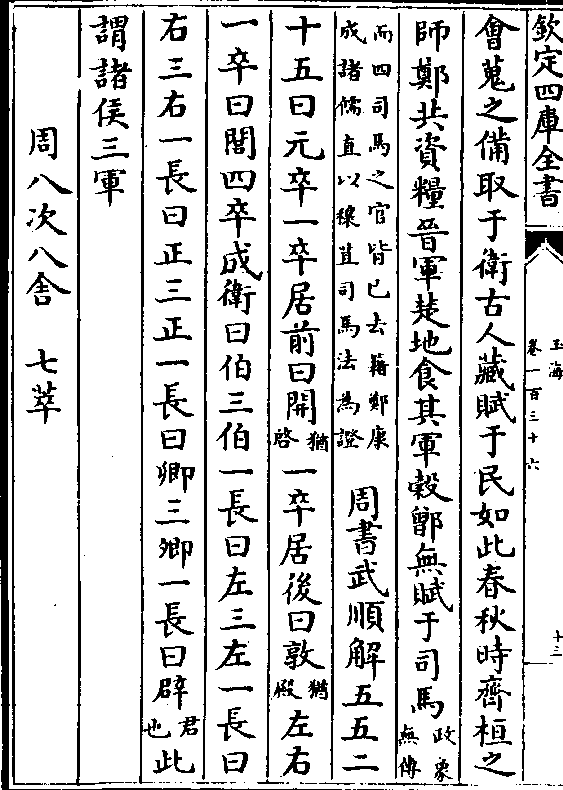 欽定四庫全書
玉海
卷一百三十六
十三
會蒐之備取于衛古人藏賦于民如此春秋時齊桓之
師鄭共資糧晉軍楚地食其軍穀鄫無賦于司馬政象無傳
而四司馬之官皆已去籍鄭康成諸儒直以穰苴司馬法為證 周書武順解五五二
十五曰元卒一卒居前曰開猶啓一卒居後曰敦猶殿左右
一卒曰閭四卒成衛曰伯三伯一長曰左三左一長曰
右三右一長曰正三正一長曰卿三卿一長曰辟君也此
謂諸侯三軍
周八次八舍 七萃